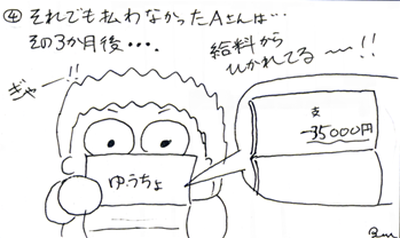 ④ それでも払わなかったAさんは…
その3か月後‥‥
給料から
ひかれてる〜〜!!
ぎゃー!!
ゆうちょ
支
-35000円